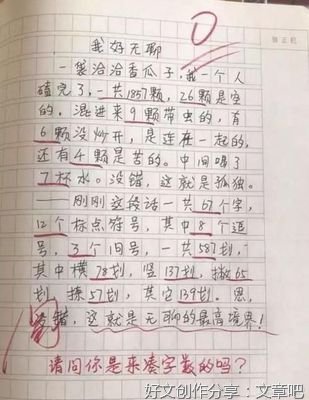 0
我好无聊
一袋洽洽香瓜子,我一个人
磕完了,一共1857颗,26颗是空
的,混进来9颗带虫的,有
6颗没炒开,是连在一起的,
还有4颗是苦的。中间喝了
7杯水。没错,这就是孤独。
——刚刚这段话一共67个字,
12个标点符号,其中8个逗
号,3个句号,一共587划,
其中横178划,竖137划,撇65
划,捺57划,其它139划。恩,
没错,这就是无聊的最高境界!
阅
请问你是来凑字数的吗?
好文创作分享:文章吧